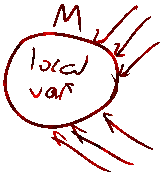 M
local
var